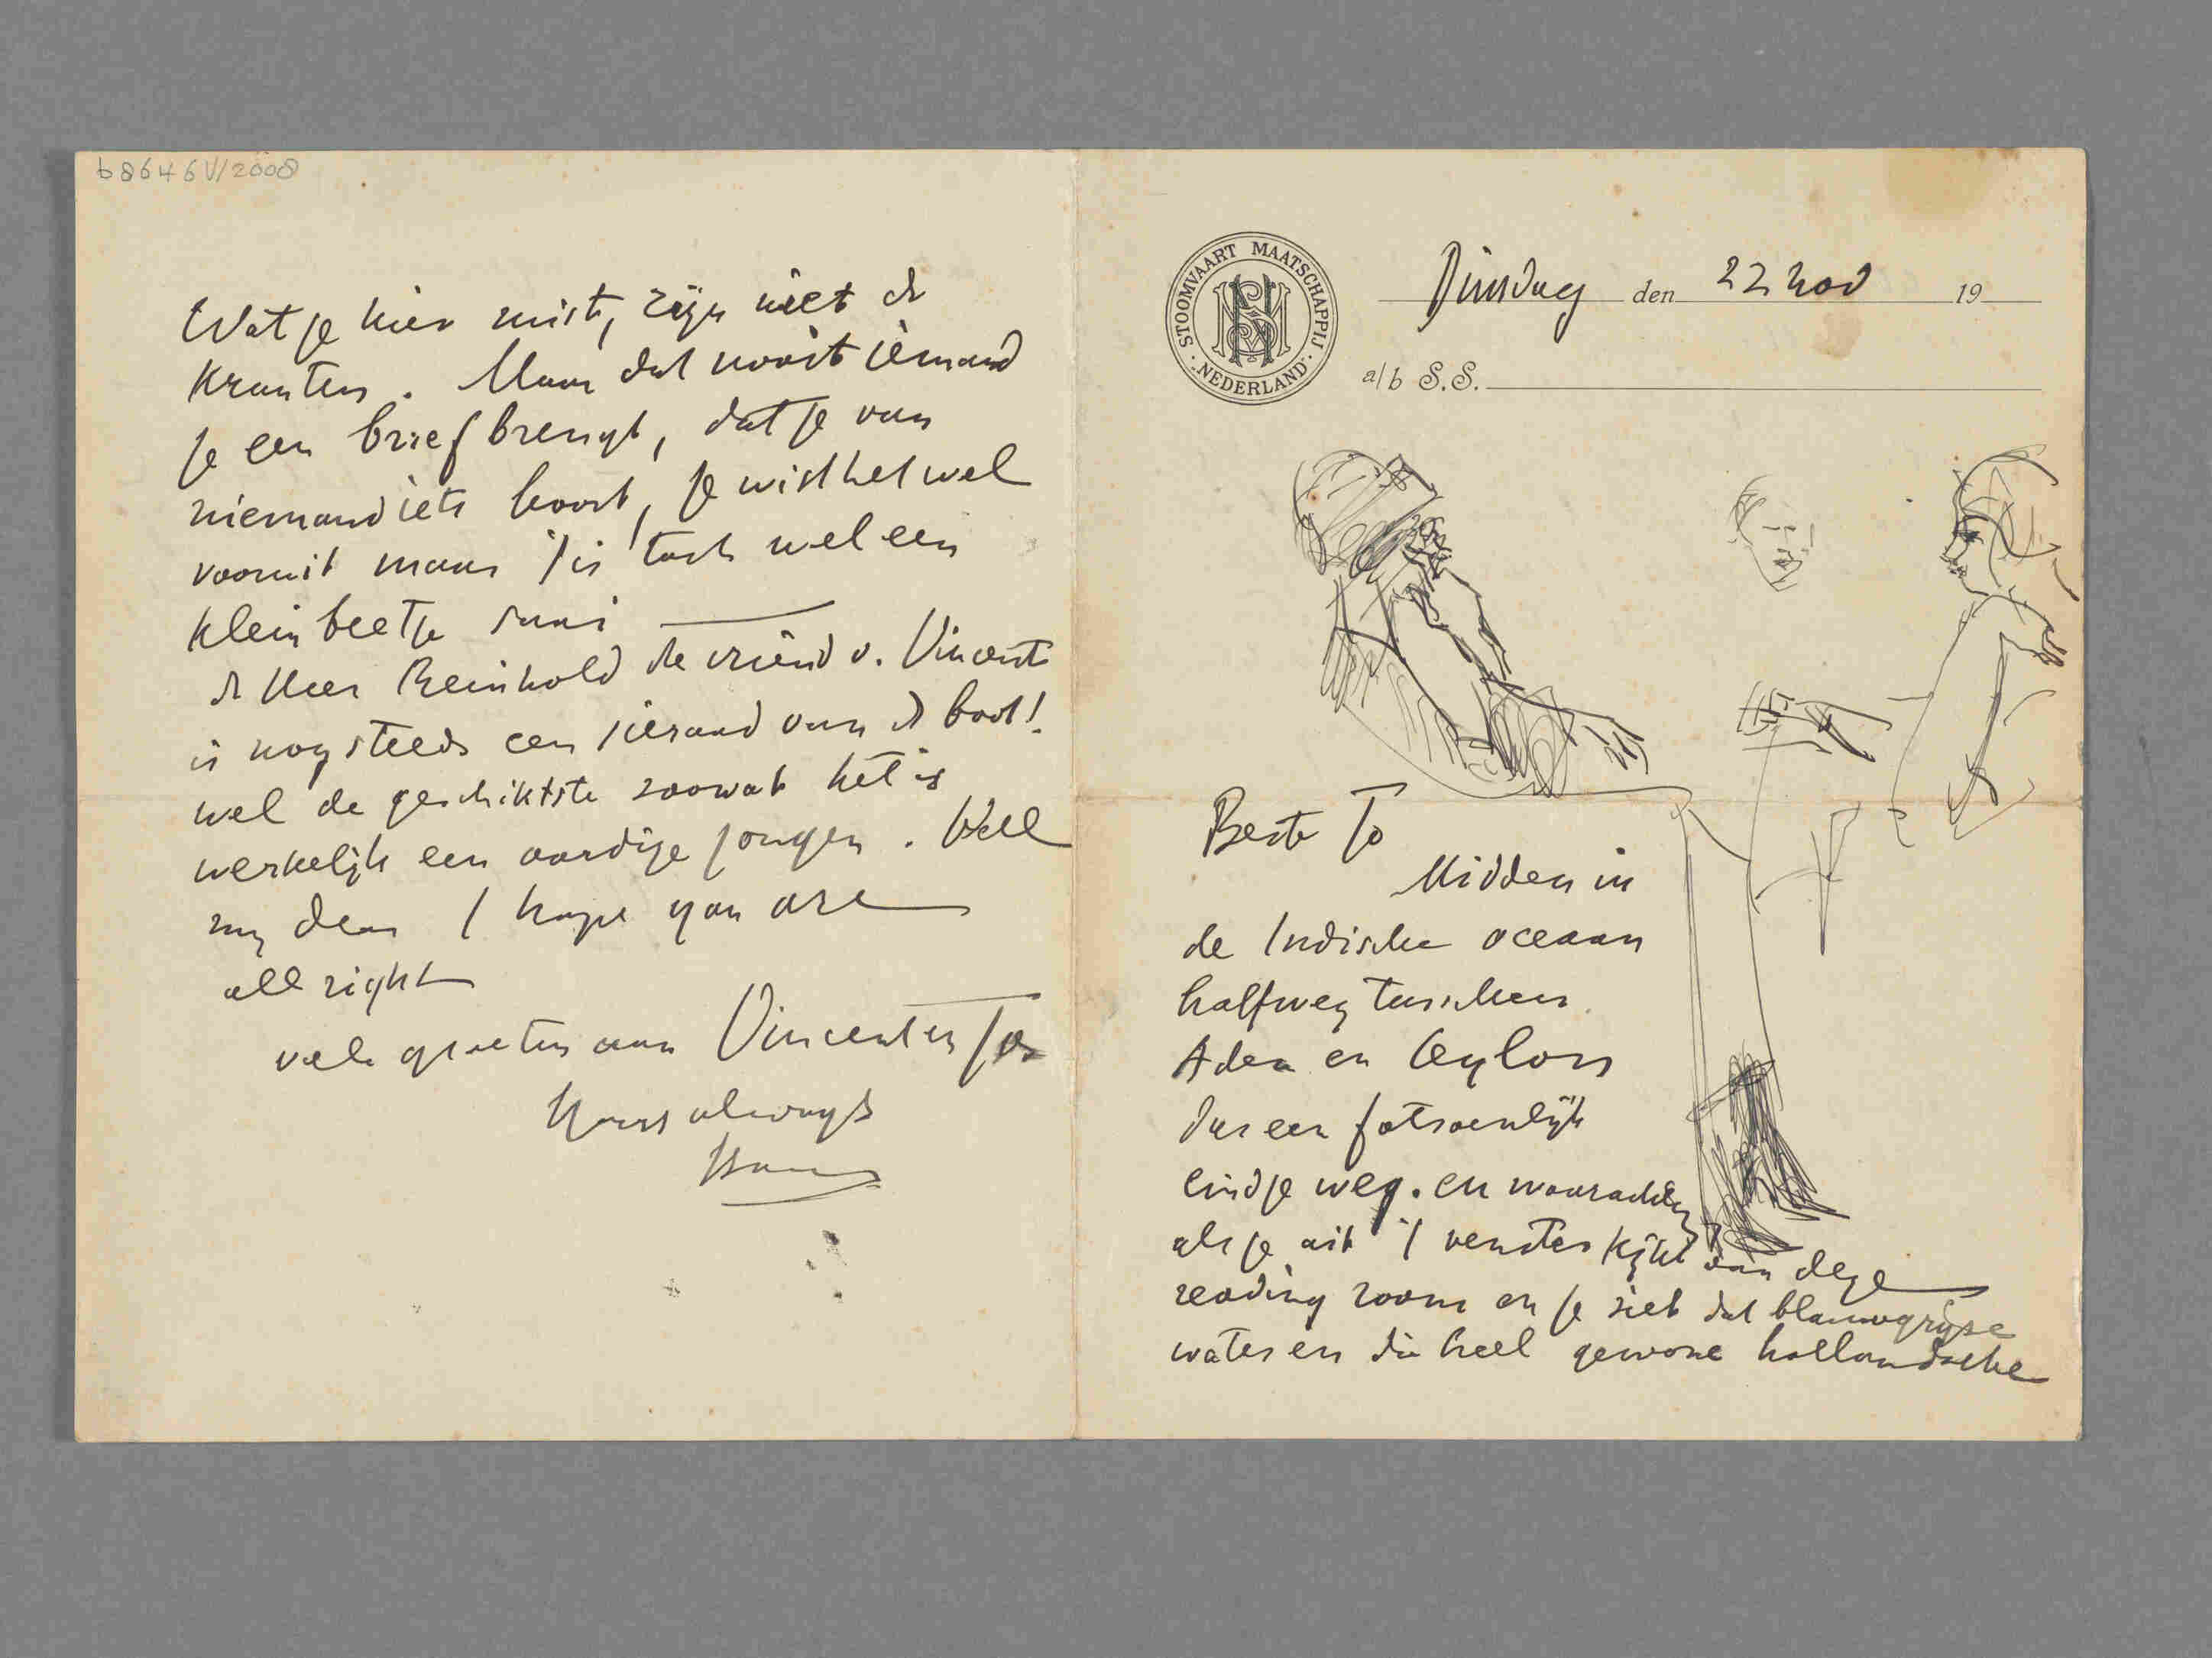 b8646 V/2008
Wat je hier mist, zijn niet de
kranten. Maar dat nooit iemand
je een brief brengt, dat je van
niemand iets hoort, je wist het wel
vooruit maar 't is toch wel een
klein beetje saai
de Heer Reinhold de vriend v. Vincent
is nog steeds een sieraad van de boot!
wel de geschiktste zoowat het is
werkelijk een aardige jongen. Well
my dear I hope you are
all right
vele groeten aan Vincent en Jo
Yours always
Hans
STOOMVAART MAATSCHAPPIJ
"NEDERLAND"
Dinsdag den 22 Nov 19
a/b S.S.
Beste Jo
Midden in
de Indische oceaan
halfweg tusschen
Aden en Ceylon
dus een fatsoenlijk
eindje weg. en waarachtig
als je uit 't venster kijkt van deze
reading room en je ziet dat blauwgrijze
water en die heel gewone hollandsche